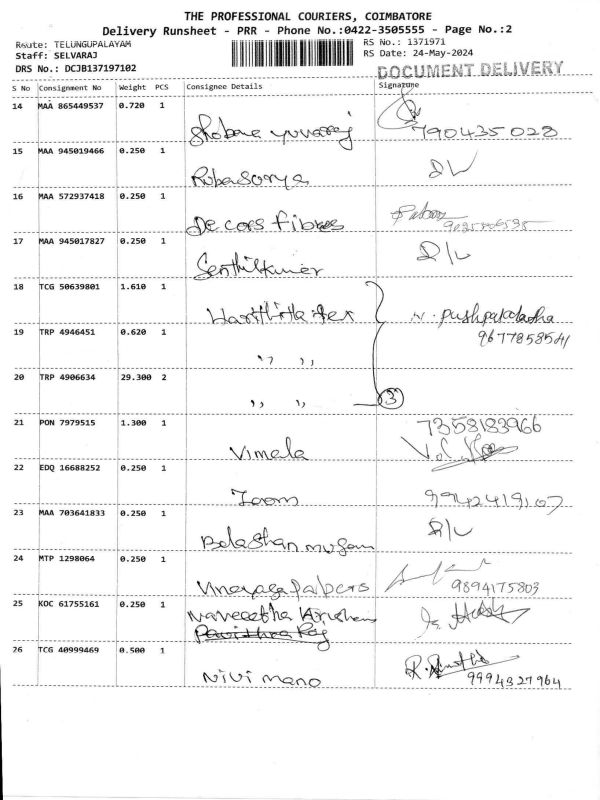 THE PROFESSIONAL COURIERS, COIMBATORE
Delivery Runsheet - PRR - Phone No.:0422-3505555 - Page No.:2
Route: TELUNGUPALAYAM
Staff: SELVARAJ
DRS No.: DCJB137197102
RS No.: 1371971
RS Date: 24-May-2024
DOCUMENT DELIVERY
S No Consignment No Weight PCS Consignee Details Signature
14 MAA 865449537 0.720 1 Shobana yuvaraj 790435028
15 MAA 945019466 0.250 1 Rubasurya
16 MAA 572937418 0.250 1 Decors fibres
17 MAA 945017827 0.250 1 Senthilkumer
18 TCG 50639801 1.610 1 N. pushpa
9677858541
19 TRP 4946451 0.620 1 ,, ,,
20 TRP 4906634 29.300 2 ,, ,, 3
21 PON 7979515 1.300 1 Vimala 7358183966
22 EDQ 16688252 0.250 1 Zoom 9942419107
23 MAA 703641833 0.250 1
24 MTP 1298064 0.250 1 9894175803
25 KOC 61755161 0.250 1
26 TCG 40999469 0.500 1 Nivi mano 9994327964